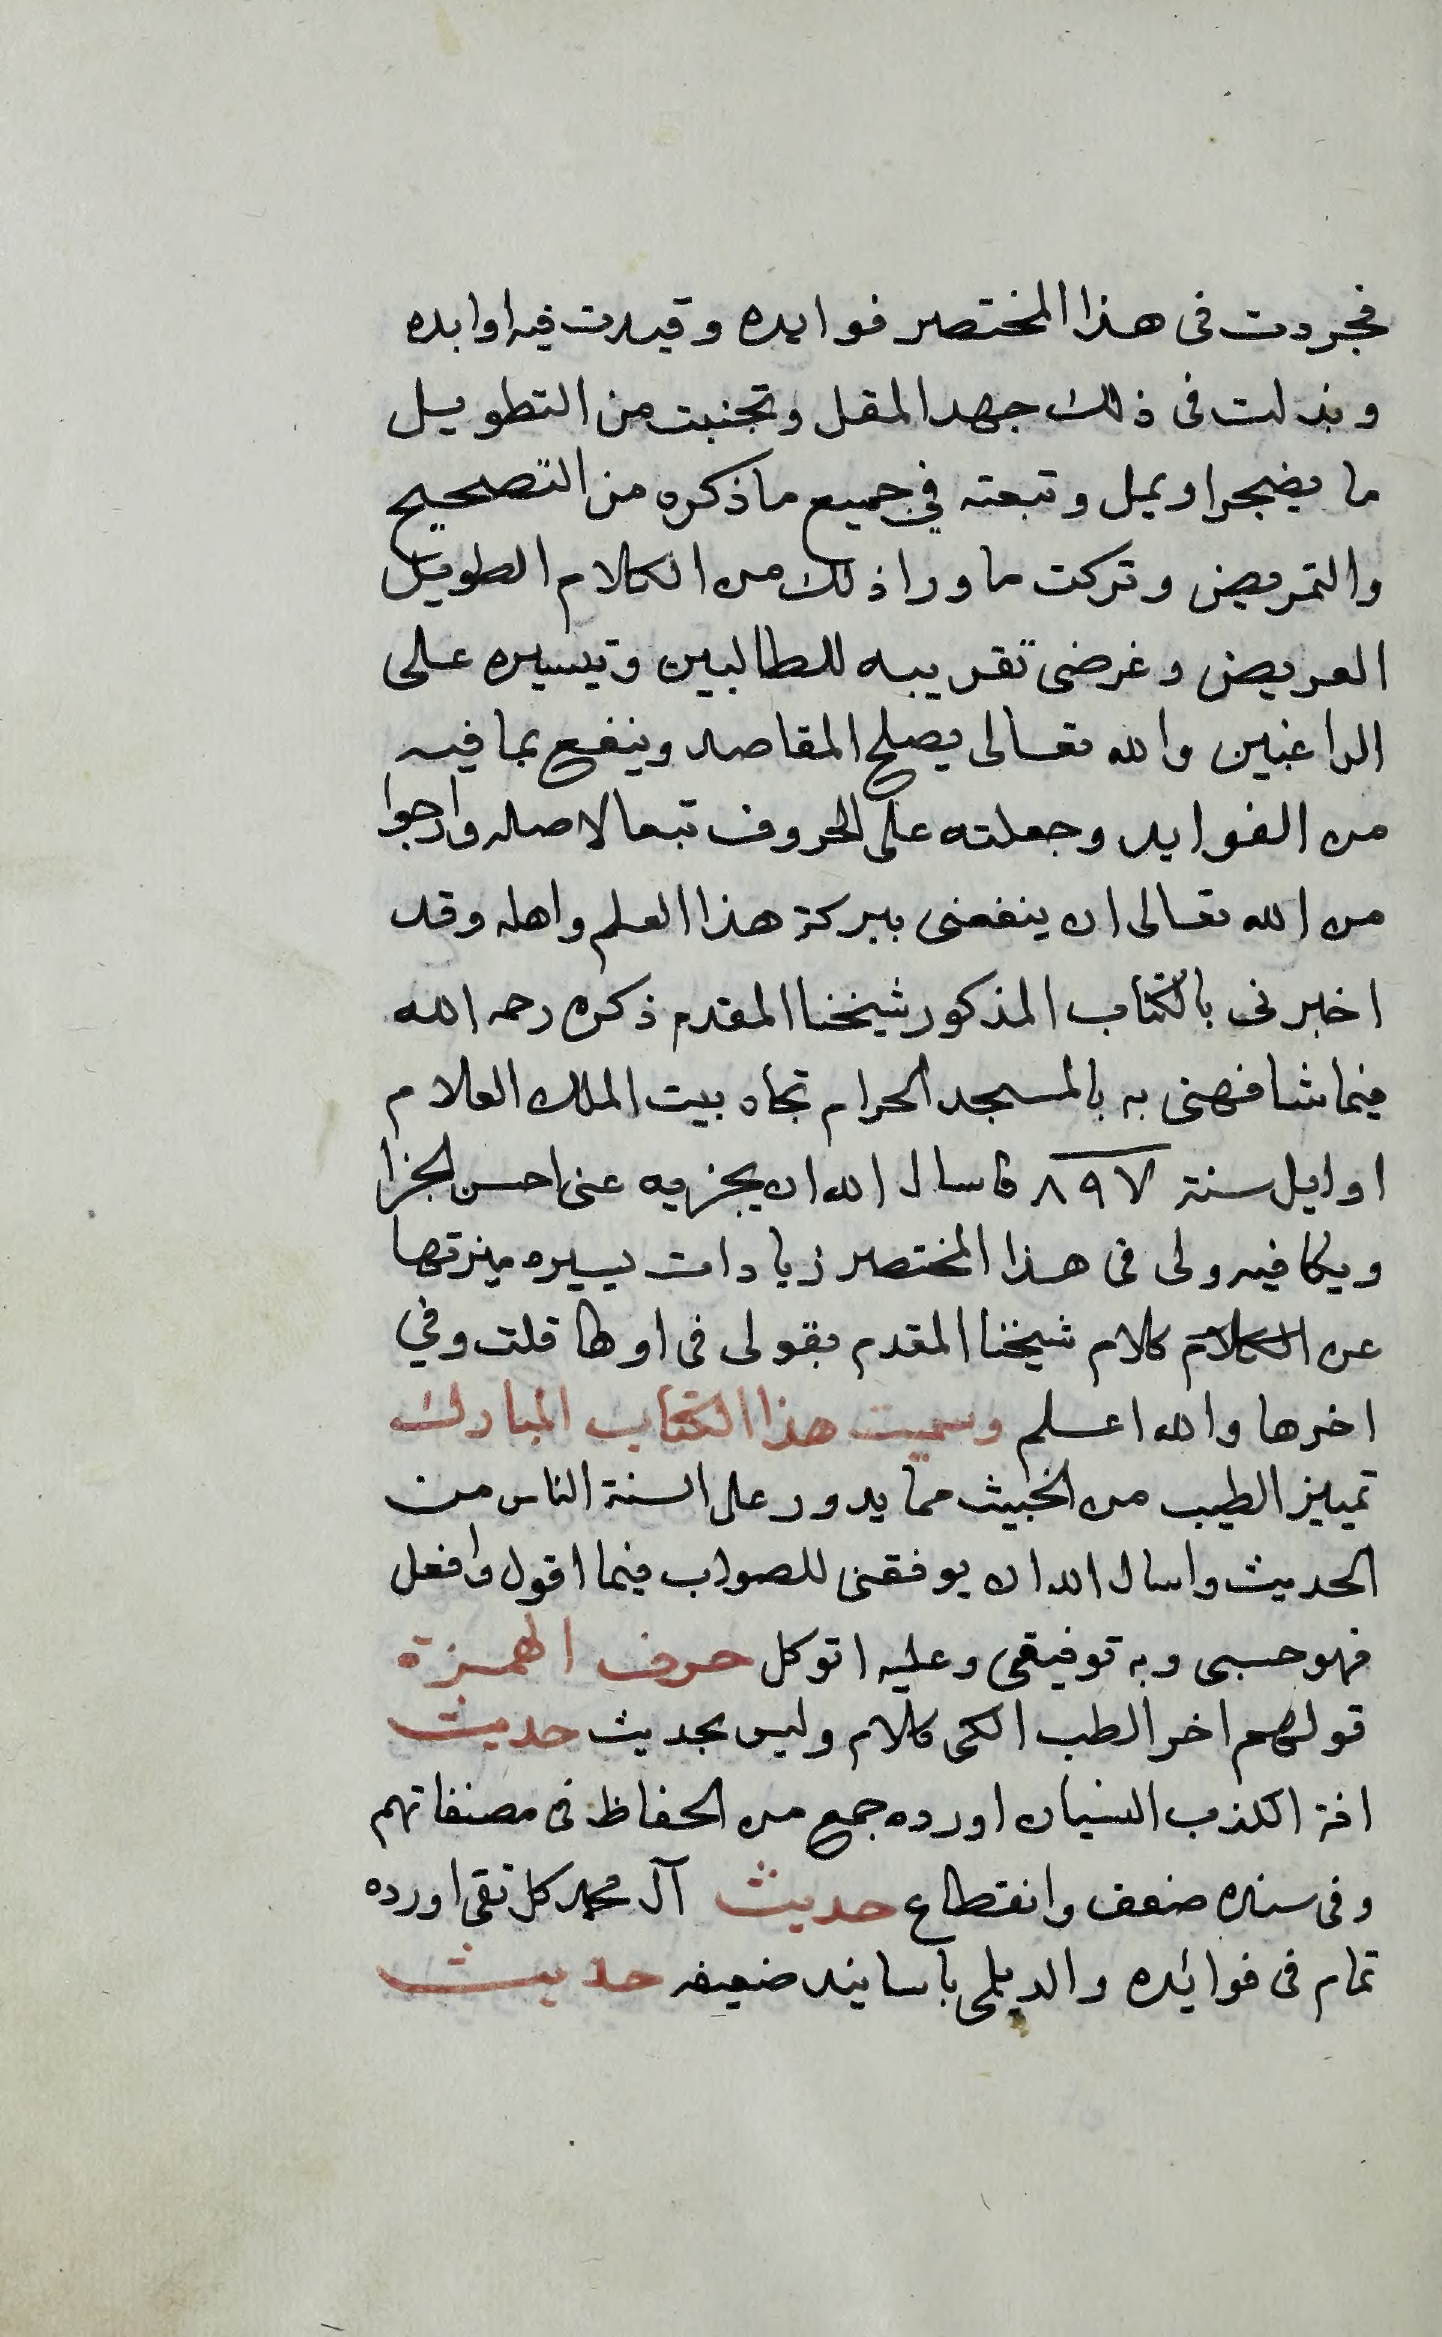 فجردت فى هذا المختصر فوايده وقيدت فيه اوابده
وبذلت فى ذلك جهد المقل وتجنبت من التطويل
ما يضجر او يمل وتبعته في جميع ما ذكره من التصحيح
والتمريض وتركت ما ورا ذلك من الكلام الطويل
العريض وغرضى تقريبه للطالبين وتيسيره على
الراغبين والله تعالى يصلح المقاصد وينفع بما فيه
من الفوايد وجعلته على الحروف تبعا لاصله وارجوا
من الله تعالى ان ينفعنى ببركة هذا العلم واهله وقد
اخبرنى بالكتاب المذكور شيخنا المقدم ذكره رحمه الله
فيما شافهنى به بالمسجد الحرام تجاه بيت الملك العلام
اوايل سنة ٨٩٧ فاسال الله ان يجزيه عنى احسن الجزا
ويكافيه ولى فى هذا المختصر زيادات يسيره ميزتها
عن الكلام كلام شيخنا المقدم بقولى فى اولها قلت وفي
اخرها والله اعلم وسميت هذا الكتاب المبارك
تمييز الطيب من الخبيث مما يدور على السنة الناس من
الحديث واسال الله ان يوفقنى للصواب فيما اقول وافعل
فهو حسبى وبه توفيقى وعليه اتوكل حرف الهمزة
قولهم اخر الطب الكى كلام وليس بحديث حديث
افة الكذب النسيان اورده جمع من الحفاظ فى مصنفاتهم
وفى سنده ضعف وانقطاع حديث آل محمد كل تقى اورده
تمام فى فوائده والديلمى باسانيد ضعيفه حديث